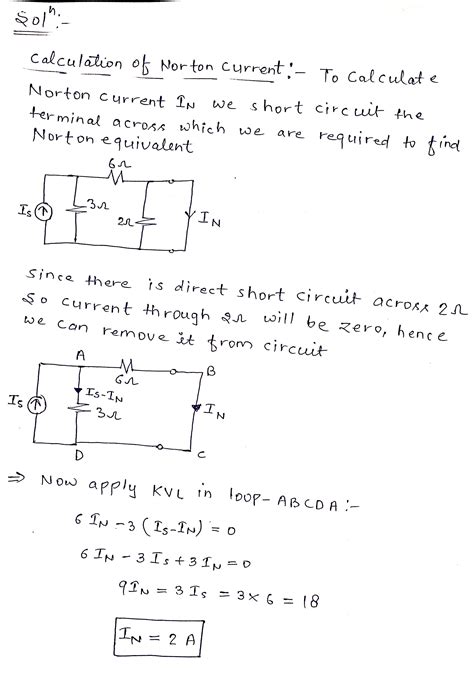 Solⁿ:-
Calculation of Norton Current:- To Calculate
Norton Current IN we short circuit the
terminal across which we are required to find
Norton equivalent
6Ω
Is
3Ω
2Ω
IN
Since there is direct short circuit across 2Ω
So current through 2Ω will be zero, hence
we can remove it from circuit
A
6Ω
B
Is
Is-IN
3Ω
IN
D
C
⇒ Now apply KVL in loop-ABCDA:-
6 IN - 3 (Is-IN) = 0
6 IN - 3 Is + 3 IN = 0
9IN = 3 Is = 3 x 6 = 18
IN = 2 A